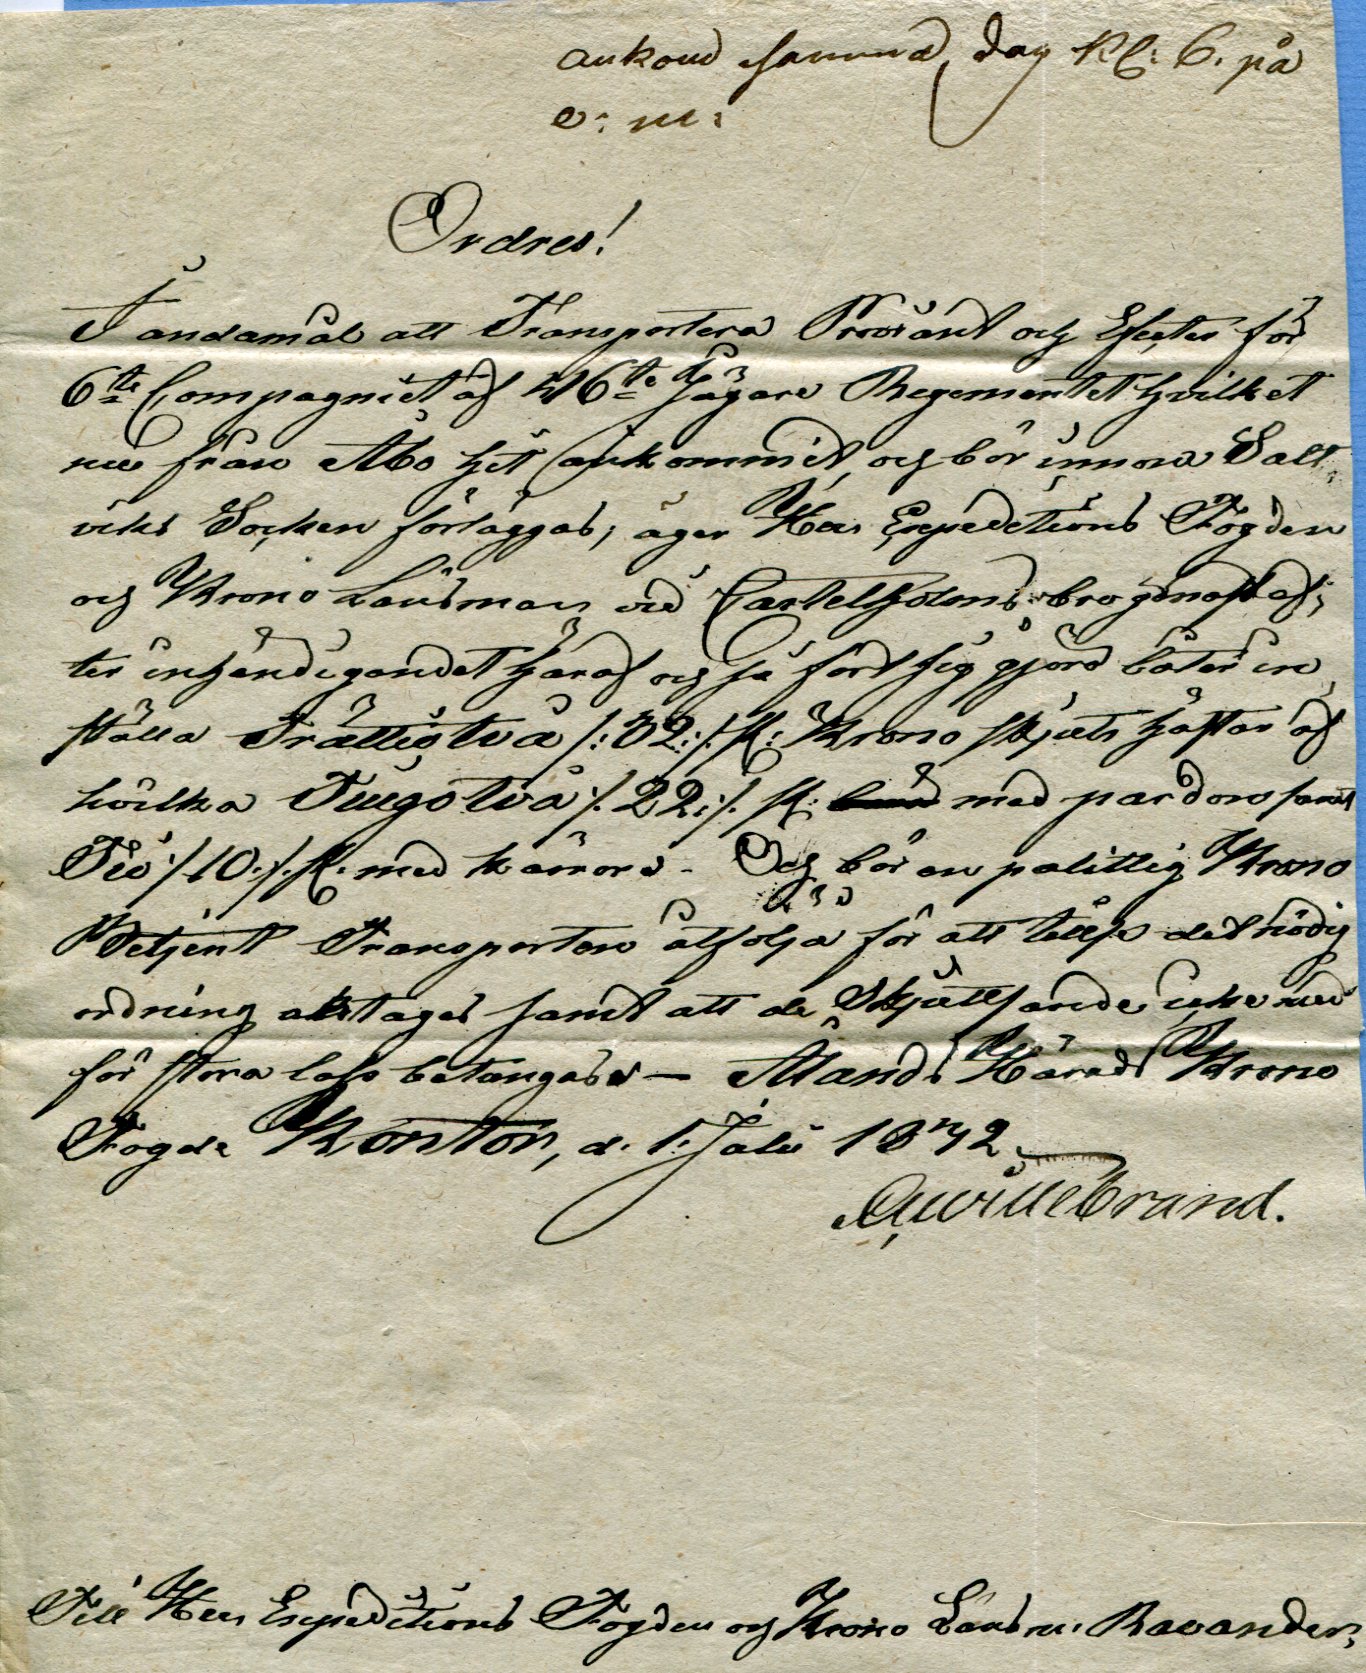 ankom samma dag Kl: 6. på
e: m:
Ordres!
I ändamål att Transportera Proviant och Efecter för
6te Compagniet af 46te Jägare Regementet hvilket
nu från Åbo hit ankommit, och bör innom Salt-
viks Socken förläggas; äger Herr Expeditions Fogden
och Krono Länsman vid Castelholms
ter inhändigandet häraf och så fort sig göra låter in
ställa Trättiotvå /:32:/ st: Krono skjuts hästar af
hvilka Tiugotvå /:22:/ st: med pardon samt
Tio /:10:/ st. med kärror - Och bör en pålittlig Krono
Betjent Transporten åtfölja för att tillse det nödig
ordning iakttages samt att de Skjuttsande icke med
för stora lass betungas - Ålands Härads Krono
Fogde Kontor, d. 1. Julii 1842.
Qwillebrand.
Till Herr Expeditions Fogden och Krono Länsm: Ravander,